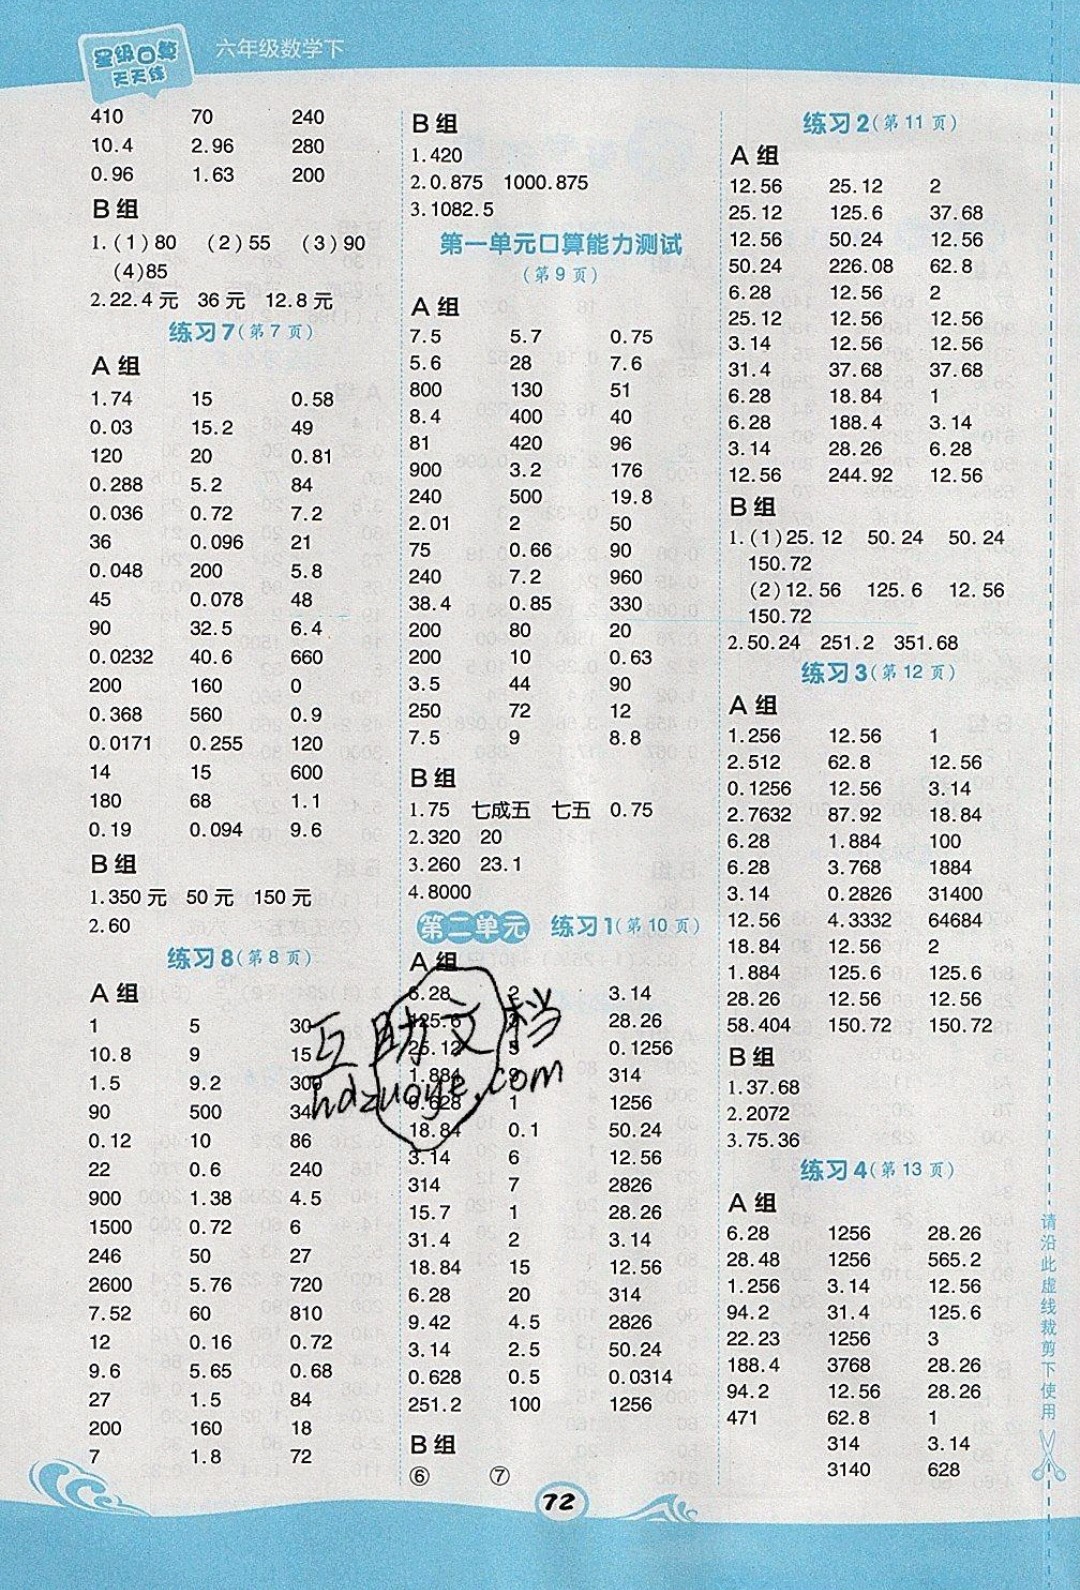 星级口算
天天练
六年级数学下
410 70 240
10.4 2.96 280
0.96 1.63 200
B 组
1.(1)80 (2)55 (3)90
(4)85
2.22.4元 36元 12.8元
练习7(第7页)
A 组
1.74 15 0.58
0.03 15.2 49
120 20 0.81
0.288 5.2 84
0.036 0.72 7.2
36 0.096 21
0.048 200 5.8
45 0.078 48
90 32.5 6.4
0.0232 40.6 660
200 160 0
0.368 560 0.9
0.0171 0.255 120
14 15 600
180 68 1.1
0.19 0.094 9.6
B 组
1.350元 50元 150元
2.60
练习8(第8页)
A 组
1 5 30
10.8 9 15
1.5 9.2 300
90 500 34
0.12 10 86
22 0.6 240
900 1.38 4.5
1500 0.72 6
246 50 27
2600 5.76 720
7.52 60 810
12 0.16 0.72
9.6 5.65 0.68
27 1.5 84
200 160 18
7 1.8 72
B 组
1.420
2.0.875 1000.875
3.1082.5
第一单元口算能力测试
(第9页)
A 组
7.5 5.7 0.75
5.6 28 7.6
800 130 51
8.4 400 40
81 420 96
900 3.2 176
240 500 19.8
2.01 2 50
75 0.66 90
240 7.2 960
38.4 0.85 330
200 80 20
200 10 0.63
3.5 44 90
250 72 12
7.5 9 8.8
B 组
1.75 七成五 七五 0.75
2.320 20
3.260 23.1
4.8000
第二单元 练习1(第10页)
A 组
6.28 2 3.14
125.6 28.26
25.12 5 0.1256
1.884 9 314
0.628 1 1256
18.84 0.1 50.24
3.14 6 12.56
314 7 2826
15.7 1 28.26
31.4 2 3.14
18.84 15 12.56
6.28 20 314
9.42 4.5 2826
3.14 2.5 50.24
0.628 0.5 0.0314
251.2 100 1256
B 组
⑥ ⑦
练习2(第11页)
A 组
12.56 25.12 2
25.12 125.6 37.68
12.56 50.24 12.56
50.24 226.08 62.8
6.28 12.56 2
25.12 12.56 12.56
3.14 12.56 12.56
31.4 37.68 37.68
6.28 18.84 1
6.28 188.4 3.14
3.14 28.26 6.28
12.56 244.92 12.56
B 组
1.(1)25.12 50.24 50.24
150.72
(2)12.56 125.6 12.56
150.72
2.50.24 251.2 351.68
练习3(第12页)
A 组
1.256 12.56 1
2.512 62.8 12.56
0.1256 12.56 3.14
2.7632 87.92 18.84
6.28 1.884 100
6.28 3.768 1884
3.14 0.2826 31400
12.56 4.3332 64684
18.84 12.56 2
1.884 125.6 125.6
28.26 12.56 12.56
58.404 150.72 150.72
B 组
1.37.68
2.2072
3.75.36
练习4(第13页)
A 组
6.28 1256 28.26
28.48 1256 565.2
1.256 3.14 12.56
94.2 31.4 125.6
22.23 1256 3
188.4 3768 28.26
94.2 12.56 28.26
471 62.8 1
314 3.14
3140 628
请沿此虚线裁剪下使用
互助文档
hdzuoye.com
72